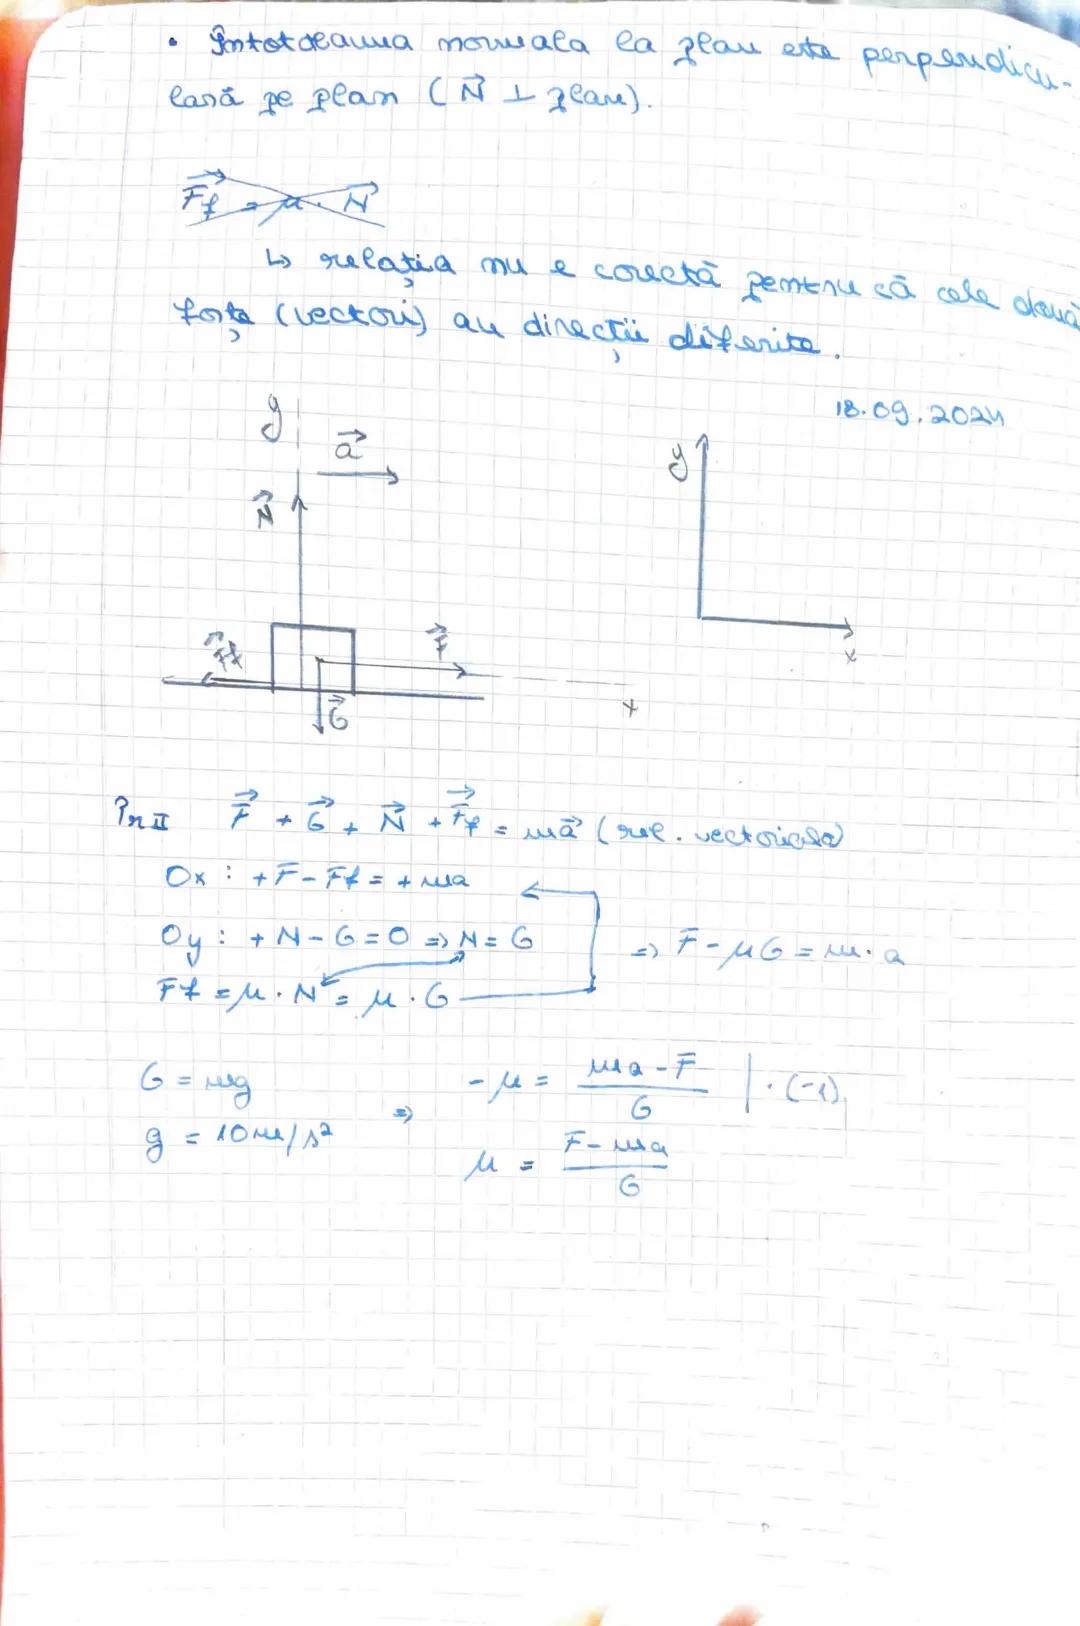 • Întotdeauna normala la plan este perpendicu-
lară pe plan (N⃗ ⊥ plan).
F⃗f = μ · N⃗
↳ relația nu e corectă pentru că cele două
forțe (vectori) au direcții diferite.
18.09.2024
y
a⃗
y
N⃗
F⃗f
F⃗
x
G⃗
x
Pr II F⃗ + G⃗ + N⃗ + F⃗f = ma⃗ (rel. vectorială)
Ox : +F - Ff = + ma
Oy : + N - G = 0 => N = G
=> F - μG = m · a
Ff = μ · N = μ · G
G = mg
g = 10 m/s²
=> -μ = (ma - F)/G | · (-1)
μ = (F - ma)/G